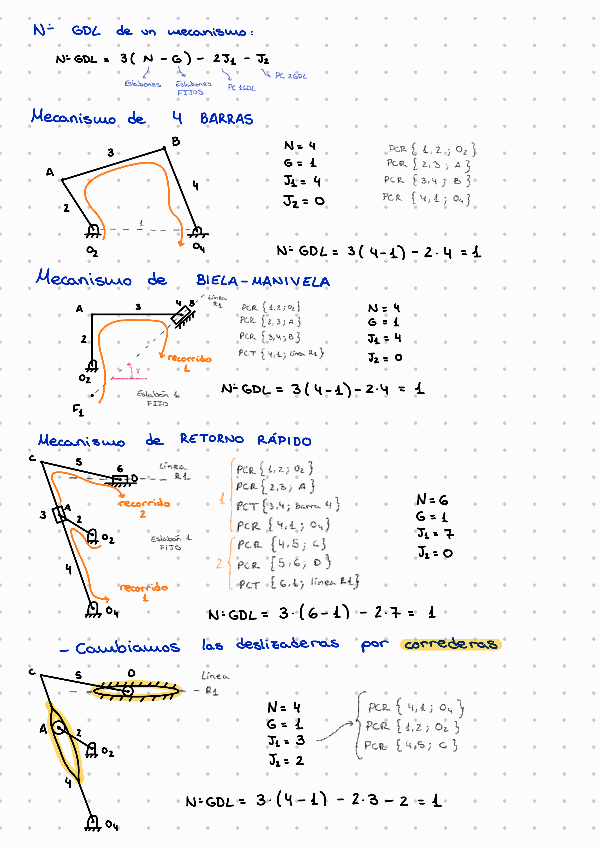 Nº GDL de un mecanismo:
Nº GDL = 3( N - G ) - 2J₁ - J₂
Eslabones Eslabones FIJOS PC 1GDL PC 2GDL
Mecanismo de 4 BARRAS
A 3 B 2 4 1 O₂ O₄
N = 4
G = 1
J₁ = 4
J₂ = 0
PCR { 1,2 ; O₂ }
PCR { 2,3 ; A }
PCR { 3,4 ; B }
PCR { 4,1 ; O₄ }
Nº GDL = 3(4-1) - 2·4 = 1
Mecanismo de BIELA-MANIVELA
A 3 4 B Línea R1
2 O₂ recorrido 1
F₁ Eslabón 1 FIJO
PCR { 1,2 ; O₂ }
PCR { 2,3 ; A }
PCR { 3,4 ; B }
PCT { 4,1 ; línea R1 }
N = 4
G = 1
J₁ = 4
J₂ = 0
Nº GDL = 3(4-1) - 2·4 = 1
Mecanismo de RETORNO RÁPIDO
C 5 6 D Línea R1
recorrido 2
3 A 2 O₂ Eslabón 1 FIJO
4 recorrido 1
O₄
1
PCR { 1,2 ; O₂ }
PCR { 2,3 ; A }
PCT { 3,4 ; barra 4 }
PCR { 4,1 ; O₄ }
2
PCR { 4,5 ; C }
PCR { 5,6 ; D }
PCT { 6,1 ; línea R1 }
N = 6
G = 1
J₁ = 7
J₂ = 0
Nº GDL = 3·(6-1) - 2·7 = 1
- Cambiamos las deslizaderas por correderas
C 5 D Línea R1
A 2 O₂
4
O₄
N = 4
G = 1
J₁ = 3
J₂ = 2
PCR { 4,1 ; O₄ }
PCR { 1,2 ; O₂ }
PCR { 4,5 ; C }
Nº GDL = 3·(4-1) - 2·3 - 2 = 1